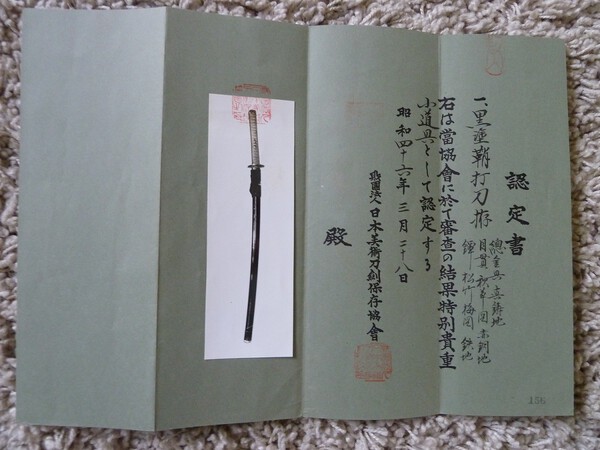 認定書
一、黒塗鞘打刀拵
總金具 真鍮地
目貫 秋草図 赤銅地
鐔 松竹梅図 鉄地
右は當協會に於て審査の結果特別貴重
小道具として認定する
昭和四十六年三月二十八日
財團法人日本美術刀剣保存協會
殿
156